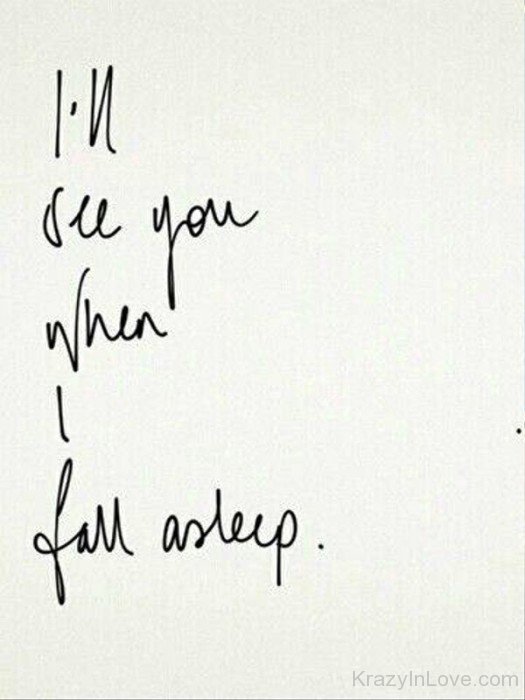 I'll
see you
when
I
fall asleep.
KrazyInLove.com